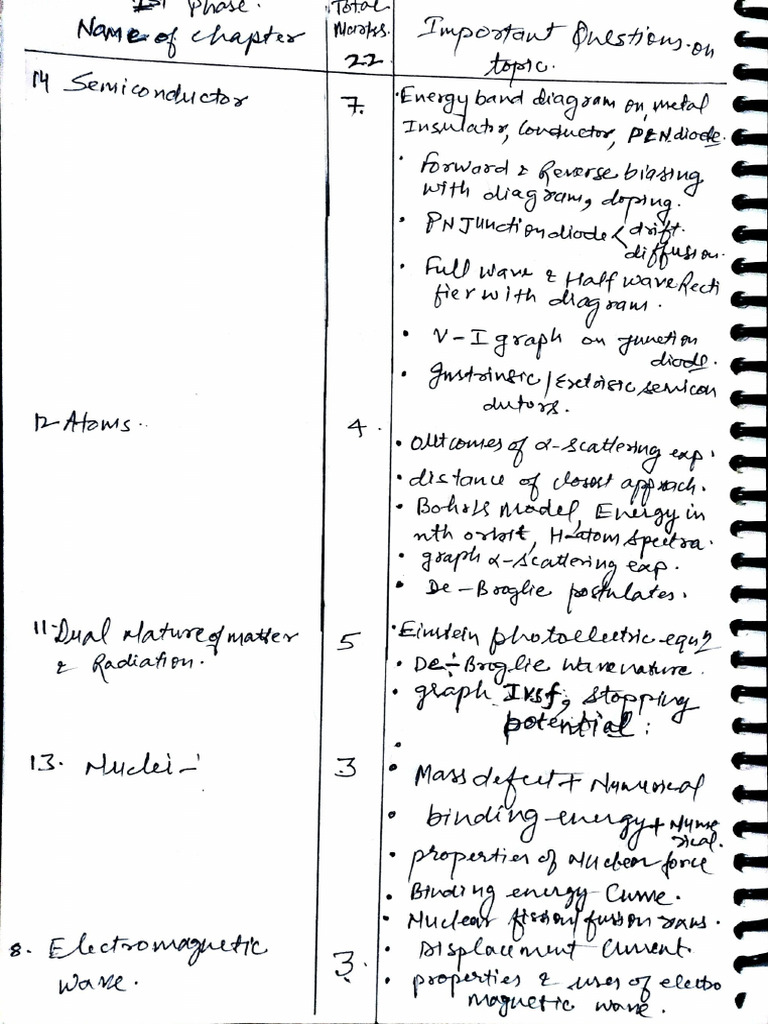 Ist Phase.
Name of chapter
Total
Marks.
22
Important Questions on
topic.
14 Semiconductor
7.
• Energy band diagram on metal
Insulator, Conductor, P&N diode.
• Forward & Reverse biasing
with diagram, doping.
• PN Junction diode < drift
diffusion.
• Full wave & Half wave Recti
fier with diagram.
• V-I graph on junction
diode.
• Instrinsic/Extrinsic semicon
dutors.
12 Atoms..
4.
• Outcomes of α-scattering exp.
• distance of closest approach.
• Bohr's Model, Energy in
nth orbit, H-atom spectra.
• graph α-scattering exp.
• De-Broglie postulates.
11. Dual Nature of matter
& Radiation.
5
• Einstein photoelectric equn
• De-Broglie wave nature.
• graph I vs f, stopping
potential:
13. Nuclei-
3
• Mass defect + Numerical
• binding energy + Nume
rical.
• properties of Nuclear force
• Binding energy Curve.
• Nuclear fission/fusion
8. Electromagnetic
wave.
3.
• Displacement Current.
• properties & uses of electro
magnetic wave.